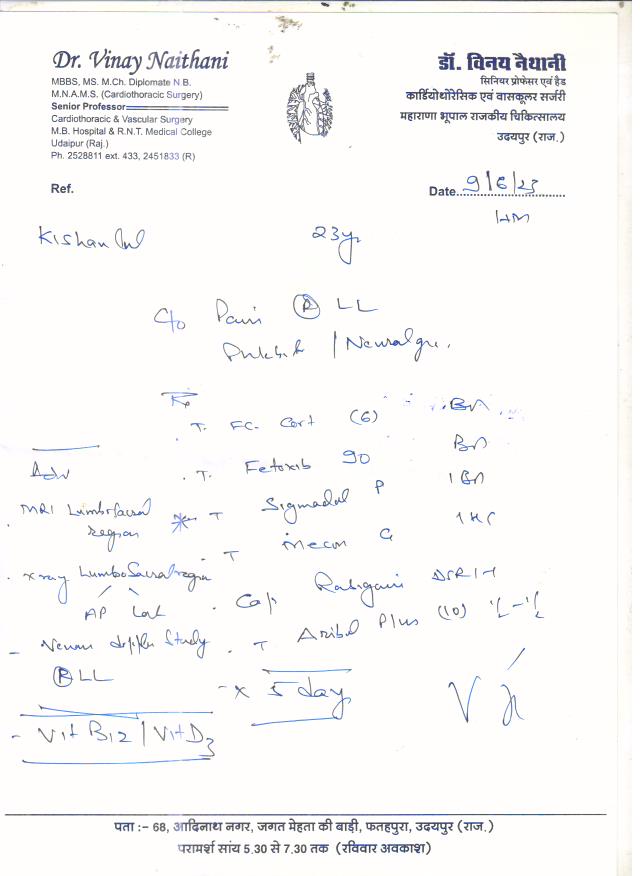 Dr. Vinay Naithani
MBBS, MS. M.Ch. Diplomate N.B.
M.N.A.M.S. (Cardiothoracic Surgery)
Senior Professor
Cardiothoracic & Vascular Surgery
M.B. Hospital & R.N.T. Medical College
Udaipur (Raj.)
Ph. 2528811 ext. 433, 2451833 (R)
डॉ. विनय नैथानी
सिनियर प्रोफेसर एवं हैड
कार्डियोथोरेसिक एवं वासकूलर सर्जरी
महाराणा भूपाल राजकीय चिकित्सालय
उदयपुर (राज.)
Ref.
Date 9/6/23
Kishan 23y
C/o Pain (R) LL
Rx
T. FC- Cort (6) BD
T. Fetoxib 90 BD
Adv
T Sigmadol P 1 BD
MRI Lumbosacral
region
T Mecon G 1 HS
X ray Lumbosacral region
AP Lat
Cap
T Plus (10)
Venous doppler Study
(R) LL
x 5 day
- Vit B12 / Vit D3
पता :- 68, आदिनाथ नगर, जगत मेहता की बाड़ी, फतहपुरा, उदयपुर (राज.)
परामर्श सांय 5.30 से 7.30 तक (रविवार अवकाश)